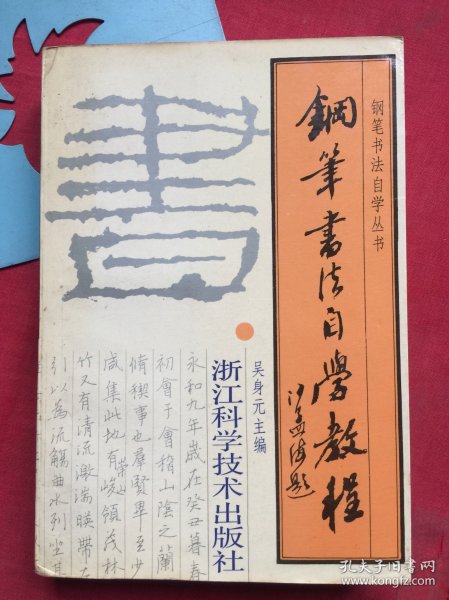 钢笔书法自学丛书
鋼筆書法自學教程
沙孟海題
吴身元主编
浙江科学技术出版社
書
永和九年歲在癸丑暮春
初會于會稽山陰之蘭
脩稧事也羣賢畢至少
咸集此地有崇山峻領茂林
竹又有清流激湍暎帶左
引以為流觴曲水列坐其
孔夫子旧书网
www.kongfz.com